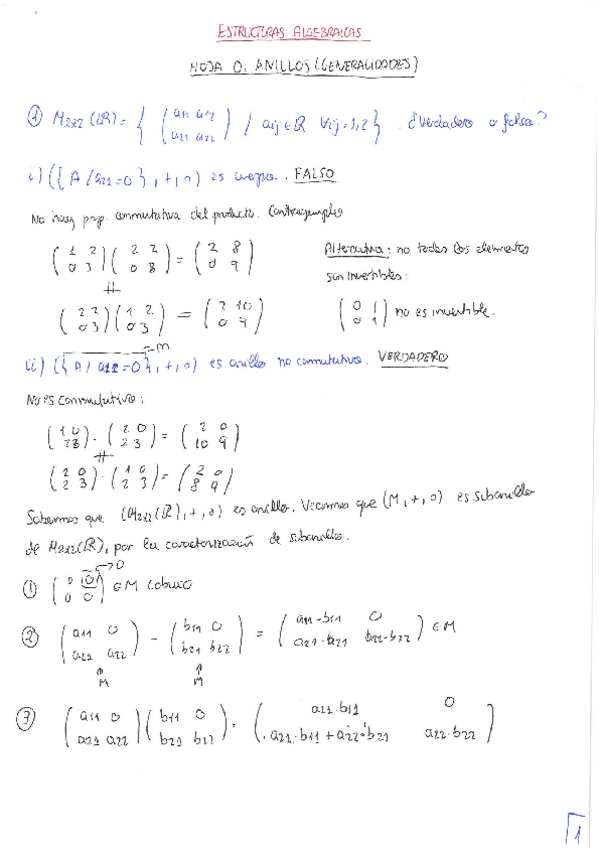 ESTRUCTURAS ALGEBRAICAS
HOJA 0. ANILLOS (GENERALIDADES)
① M2x2(ℝ) = { (a11 a12 / a21 a22) / aij ∈ ℝ ∀ij=1,2 } . ¿Verdadero o falso?
i) ({A / a21=0}, +, ·) es cuerpo. FALSO
No hay prop. conmutativa del producto. Contraejemplo
(1 2 / 0 3)(2 2 / 0 3) = (2 8 / 0 9)
≠
(2 2 / 0 3)(1 2 / 0 3) = (2 10 / 0 9)
Alternativa: no todos los elementos
son invertibles:
(0 1 / 0 1) no es invertible.
ii) ({A / a12=0}, +, ·) es anillo no conmutativo. VERDADERO
M
No es conmutativo:
(1 0 / 2 3) · (2 0 / 2 3) = (2 0 / 10 9)
≠
(2 0 / 2 3) · (1 0 / 2 3) = (2 0 / 8 9)
Sabemos que (M2x2(ℝ), +, ·) es anillo. Veamos que (M, +, ·) es subanillo
de M2x2(ℝ), por la caracterización de subanillos.
① (0 0 / 0 0) ∈ M (obvio)
→ 0
② (a11 0 / a21 a22) - (b11 0 / b21 b22) = (a11-b11 0 / a21-b21 a22-b22) ∈ M
M M
③ (a11 0 / a21 a22)(b11 0 / b21 b22) = (a11·b11 0 / a21·b11 + a22·b21 a22·b22)
1